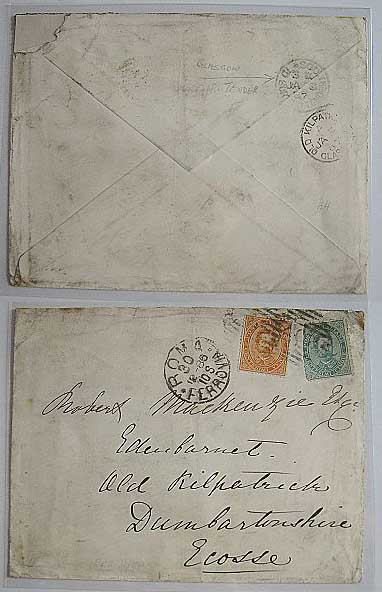 GLASGOW
TENDER
OLD KILPAT
GLAS
JA
ROMA
30
10 S
FERROVIA
Robert Mackenzie Esqr
Edenbarnet.
Old Kilpatrick
Dumbartonshire
Ecosse